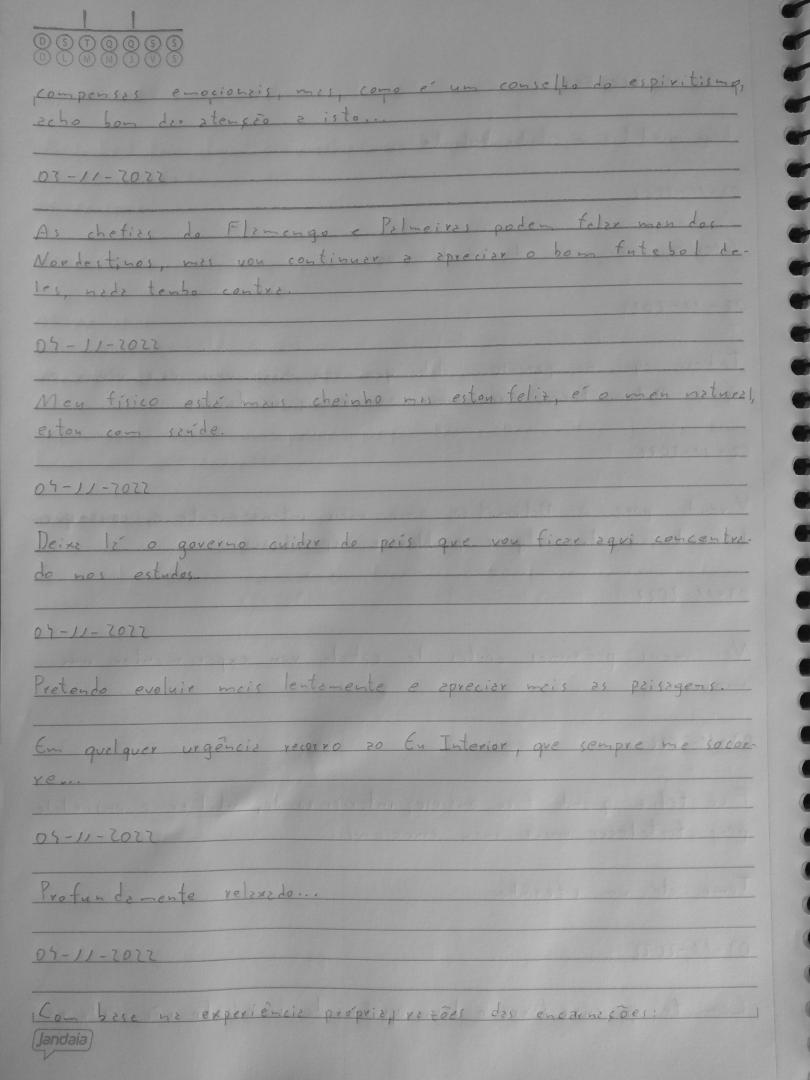 D S T Q Q S S
D L M M J V S
compensas emocionais, mas, como é um conselho do espiritismo,
acho bom dar atenção a isto...
03-11-2022
As chefias do Flamengo e Palmeiras podem falar mau dos
Nordestinos, mas vou continuar a apreciar o bom futebol de-
les, nada tenho contra.
04-11-2022
Meu físico está mais cheinho mas estou feliz, é o meu natural,
estou com saúde.
04-11-2022
Deixa lá o governo cuidar do país que vou ficar aqui concentra-
do nos estudos.
04-11-2022
Pretendo evoluir mais lentamente e apreciar mais as paisagens.
Em qualquer urgência recorro ao Eu Interior, que sempre me socor-
re...
04-11-2022
Profundamente relaxado...
04-11-2022
Com base na experiência própria, razões das encarnações:
Jandaia